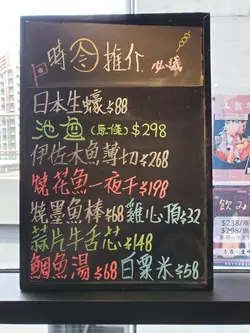 時令推介
必食
日本生蠔$88
池魚(原條)$298
伊佐木魚薄切$268
燒花魚一夜干$198
燒墨魚棒$68 雞心頂$32
蒜片牛舌芯$148
鯛魚湯$68 白粟米$58
飲み
$238/兩
$298/無